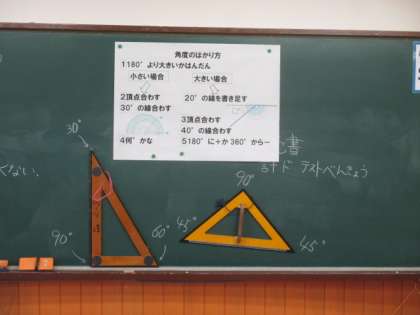 角度のはかり方
1180°より大きいかはんだん
小さい場合 大きい場合
2頂点合わす 20°の線を書き足す
30°の線合わす
3頂点合わす
40°の線合わす
4何°かな 5180°に+か360°からー
書
テストべんきょう
くない.
30°
90°
60°
90°
45°
45°